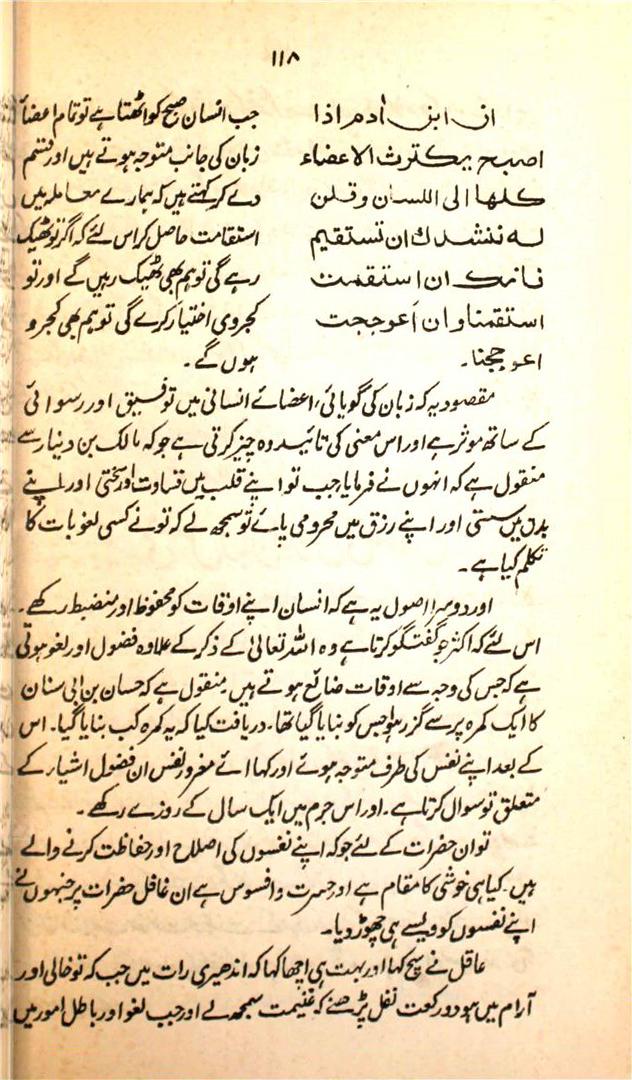 ۱۱۸
ان ابن اٰدم اذا
اصبح یکترث الاعضاء
کلھا الی اللسان وقلن
لہ ننشدك ان تستقیم
فانك ان استقمت
استقمنا وان اَعوججت
اعوججنا۔
جب انسان صبح کو اٹھتا ہے تو تمام اعضأ
زبان کی جانب متوجہ ہوتے ہیں اور قسم
دے کر کہتے ہیں کہ ہمارے معاملہ میں
استقامت حاصل کر اس لئے کہ اگر تو ٹھیک
رہے گی تو ہم بھی ٹھیک رہیں گے اور تو
کجروی اختیار کرے گی تو ہم بھی کجرو
ہوں گے۔
مقصود یہ کہ زبان کی گویائی، اعضائے انسانی میں توفیق اور رسوائی
کے ساتھ موثر ہے اور اس معنی کی تائید وہ چیز کرتی ہے جو کہ مالک بن دینار سے
منقول ہے کہ انہوں نے فرمایا جب تو اپنے قلب میں قساوت اور سختی اور اپنے
بدن میں سستی اور اپنے رزق میں محرومی پائے تو سمجھ لے کہ تو نے کسی لغو بات کا
تکلم کیا ہے۔
اور دوسرا اصول یہ ہے کہ انسان اپنے اوقات کو محفوظ اور منضبط رکھے۔
اس لئے کہ اکثر جو گفتگو کرتا ہے وہ اللہ تعالیٰ کے ذکر کے علاوہ فضول اور لغو ہوتی
ہے کہ جس کی وجہ سے اوقات ضائع ہوتے ہیں منقول ہے کہ حسان بن ابی سنان
کا ایک کمرہ پر سے گزر ہوا جس کو بنایا گیا تھا۔ دریافت کیا کہ یہ کمرہ کب بنایا گیا۔ اس
کے بعد اپنے نفس کی طرف متوجہ ہوئے اور کہا اے مغرور نفس ان فضول اشیار کے
متعلق تو سوال کرتا ہے۔ اور اس جرم میں ایک سال کے روزے رکھے۔
تو ان حضرات کے لئے جو کہ اپنے نفسوں کی اصلاح اور حفاظت کرنے والے
ہیں۔ کیا ہی خوشی کا مقام ہے اور حسرت و افسوس ہے ان غافل حضرات پر جنہوں نے
اپنے نفسوں کو ویسے ہی چھوڑ دیا۔
عاقل نے سچ کہا اور بہت ہی اچھا کہا کہ اندھیری رات میں جب کہ تو خالی اور
آرام میں ہو دو رکعت نفل پڑھنے کو غنیمت سمجھ لے اور جب لغو اور باطل امور میں